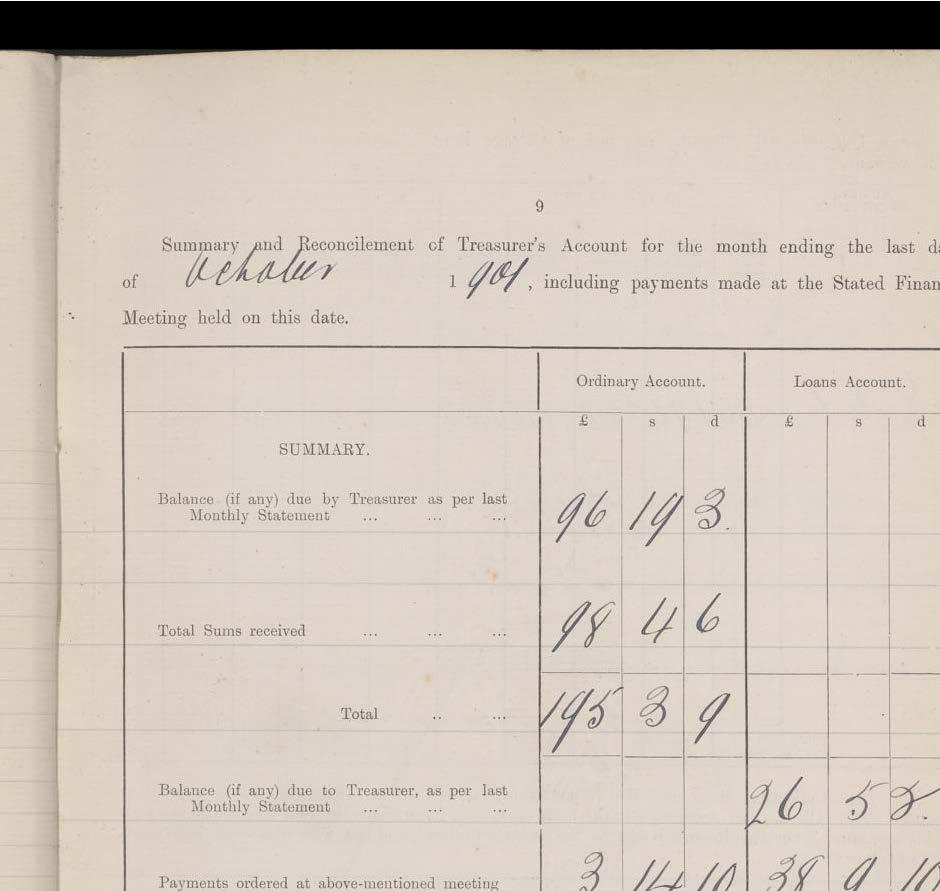 9
Summary and Reconcilement of Treasurer's Account for the month ending the last
of October 1901, including payments made at the Stated
Meeting held on this date.
Ordinary Account. Loans Account.
£ s d £ s d
SUMMARY.
Balance (if any) due by Treasurer as per last
Monthly Statement ... ... ... 96 19 3.
Total Sums received ... ... ... 98 4 6
Total .. ... 195 3 9
Balance (if any) due to Treasurer, as per last
Monthly Statement ... ... ... 26 5 2.
Payments ordered at above-mentioned meeting 3 14 10 38 9